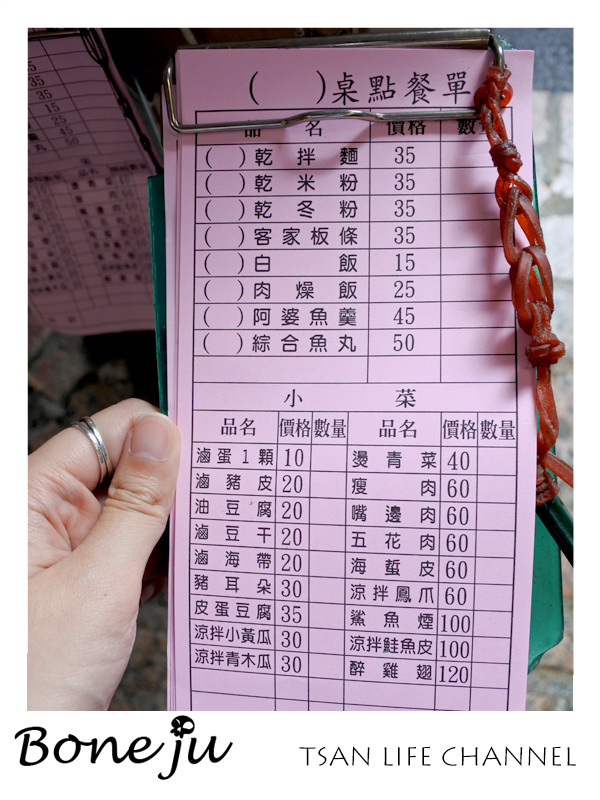 ( )桌點餐單
品名 價格 數量
( )乾拌麵 35
( )乾米粉 35
( )乾冬粉 35
( )客家板條 35
( )白飯 15
( )肉燥飯 25
( )阿婆魚羹 45
( )綜合魚丸 50
小菜
品名 價格 數量 品名 價格 數量
滷蛋1顆 10 燙青菜 40
滷豬皮 20 瘦肉 60
油豆腐 20 嘴邊肉 60
滷豆干 20 五花肉 60
滷海帶 20 海蜇皮 60
豬耳朵 30 涼拌鳳爪 60
皮蛋豆腐 35 鯊魚煙 100
涼拌小黃瓜 30 涼拌鮭魚皮 100
涼拌青木瓜 30 醉雞翅 120
Boneju TSAN LIFE CHANNEL